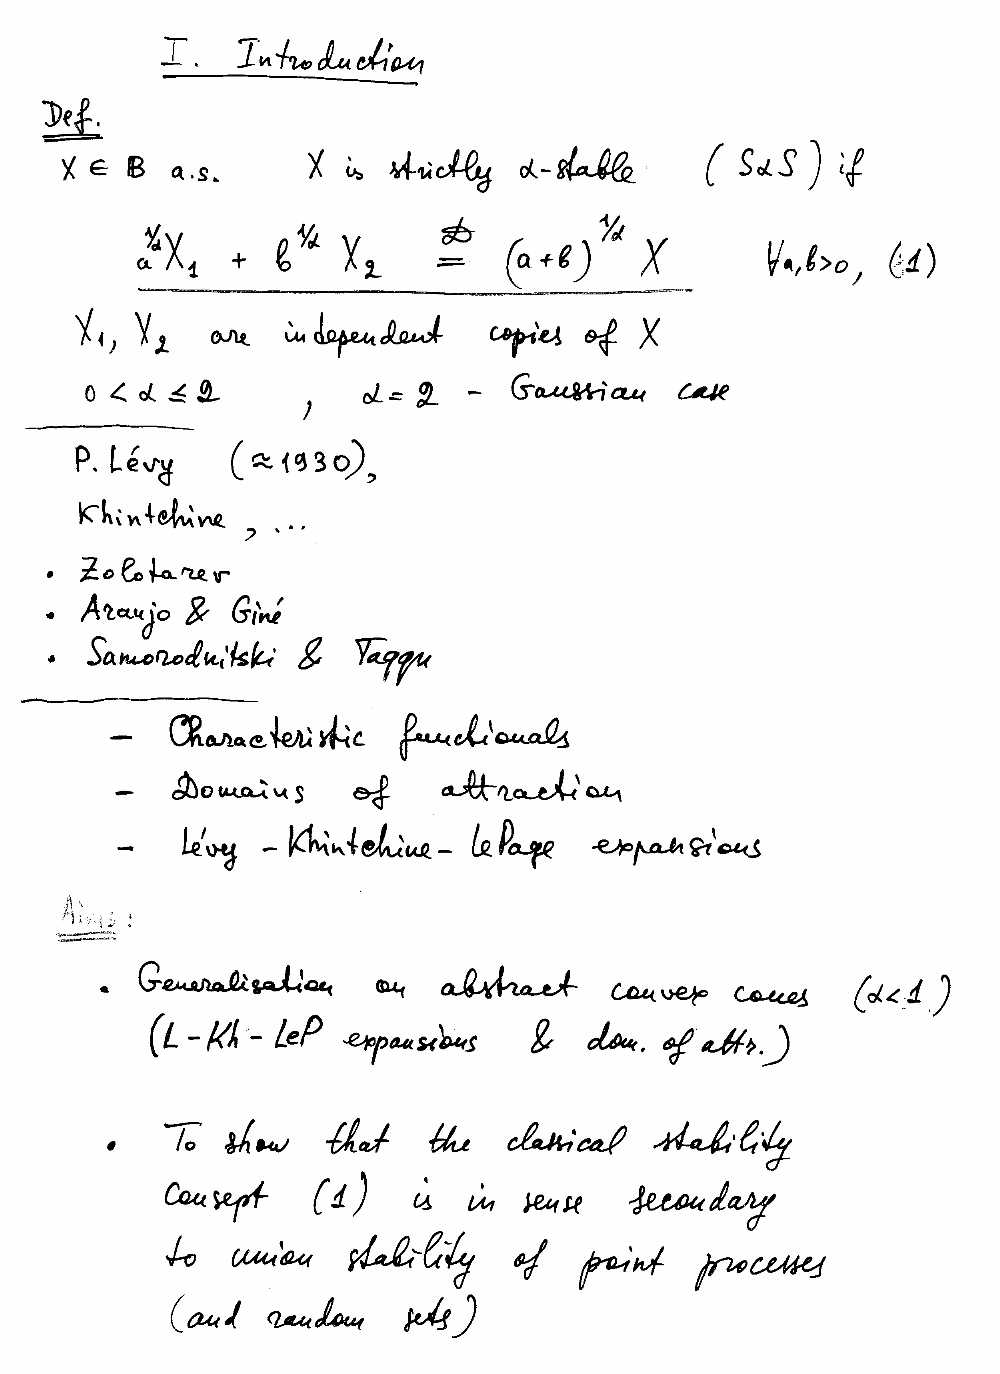 I. Introduction
Def.
X ∈ B a.s. X is strictly α-stable (SαS) if
a^{1/α} X₁ + b^{1/α} X₂ =^{𝒟} (a+b)^{1/α} X ∀a,b>0, (1)
X₁, X₂ are independent copies of X
0 < α ≤ 2 , α = 2 - Gaussian case
P. Lévy (≈1930),
Khintchine, ...
• Zolotarev
• Araujo & Giné
• Samorodnitski & Taqqu
– Characteristic functionals
– Domains of attraction
– Lévy - Khintchine - LePage expansions
Aims:
• Generalisation on abstract convex cones (α<1)
(L-Kh-LeP expansions & dom. of attr.)
• To show that the classical stability
consept (1) is in sense secondary
to union stability of point processes
(and random sets)